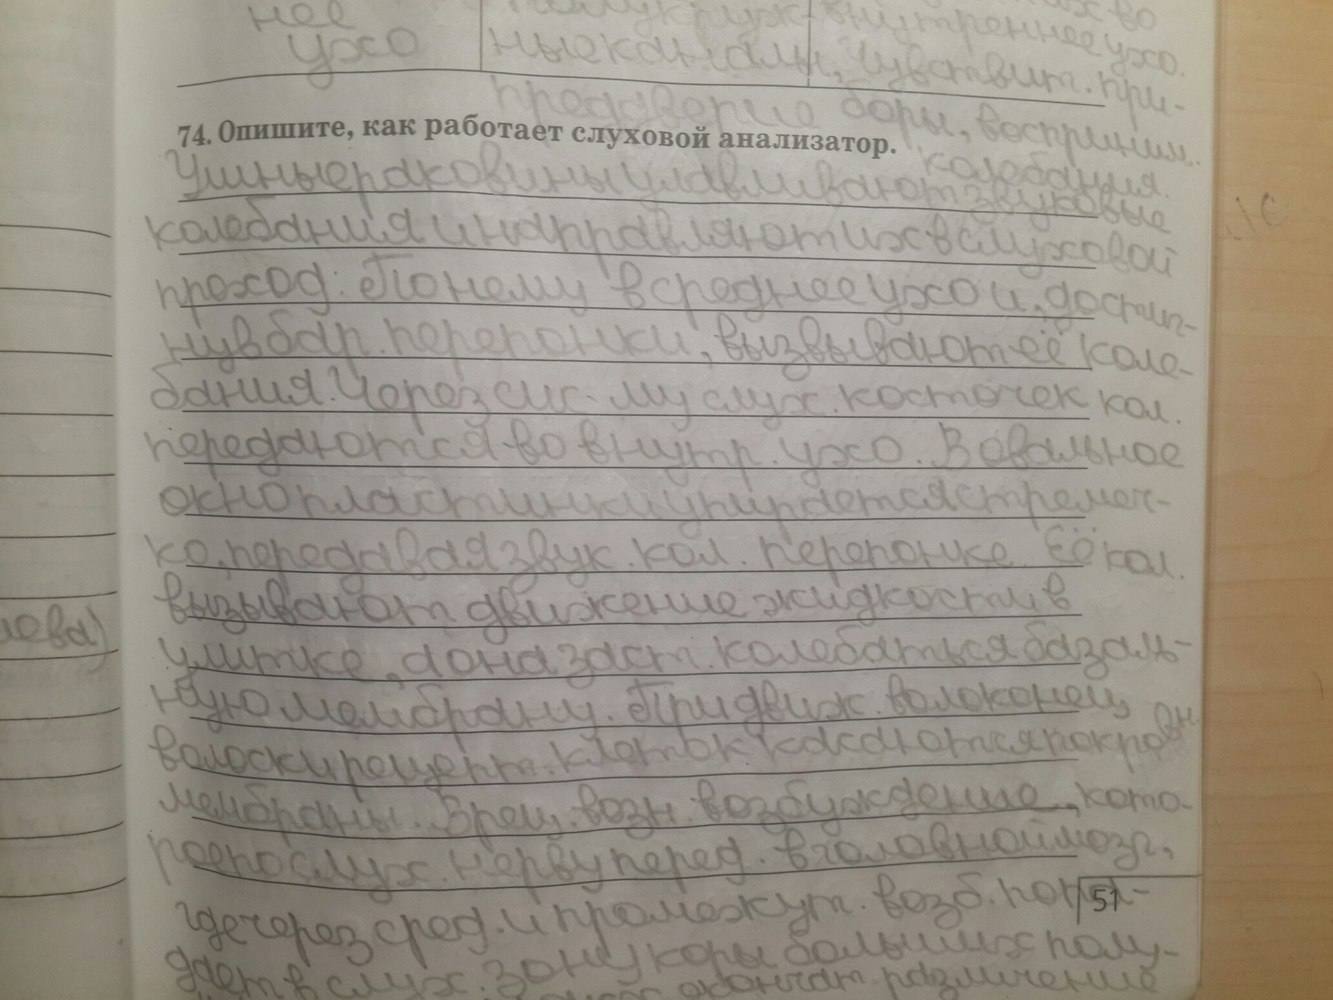 нее
ухо
полукруж-
ные каналы,
преддверие
внутреннее ухо.
Чувствит. при-
боры, восприним.
колебания.
74. Опишите, как работает слуховой анализатор.
Ушные раковины улавливают звуковые
колебания и направляют их в слуховой
проход. По нему в среднее ухо и, достиг-
нув бар. перепонки, вызвывают её коле-
бания. Через сис-му слух. косточек кол.
передаются во внутр. ухо. В овальное
окно пластинки упирается стремеч-
ко, передавая звук. кол. перепонке. Её кол.
вызывают движение жидкости в
улитке, а она заст. колебаться базаль-
ную мембрану. При движ. волоконец
волоски рецепт. клеток касаются покровн.
мембраны. В рец. возн. возбуждение, кото-
рое по слух. нерву перед. в головной мозг,
где через сред. и промежут. возб. попа-
51
дает в слух. зону коры больших полу-
окончат. различение